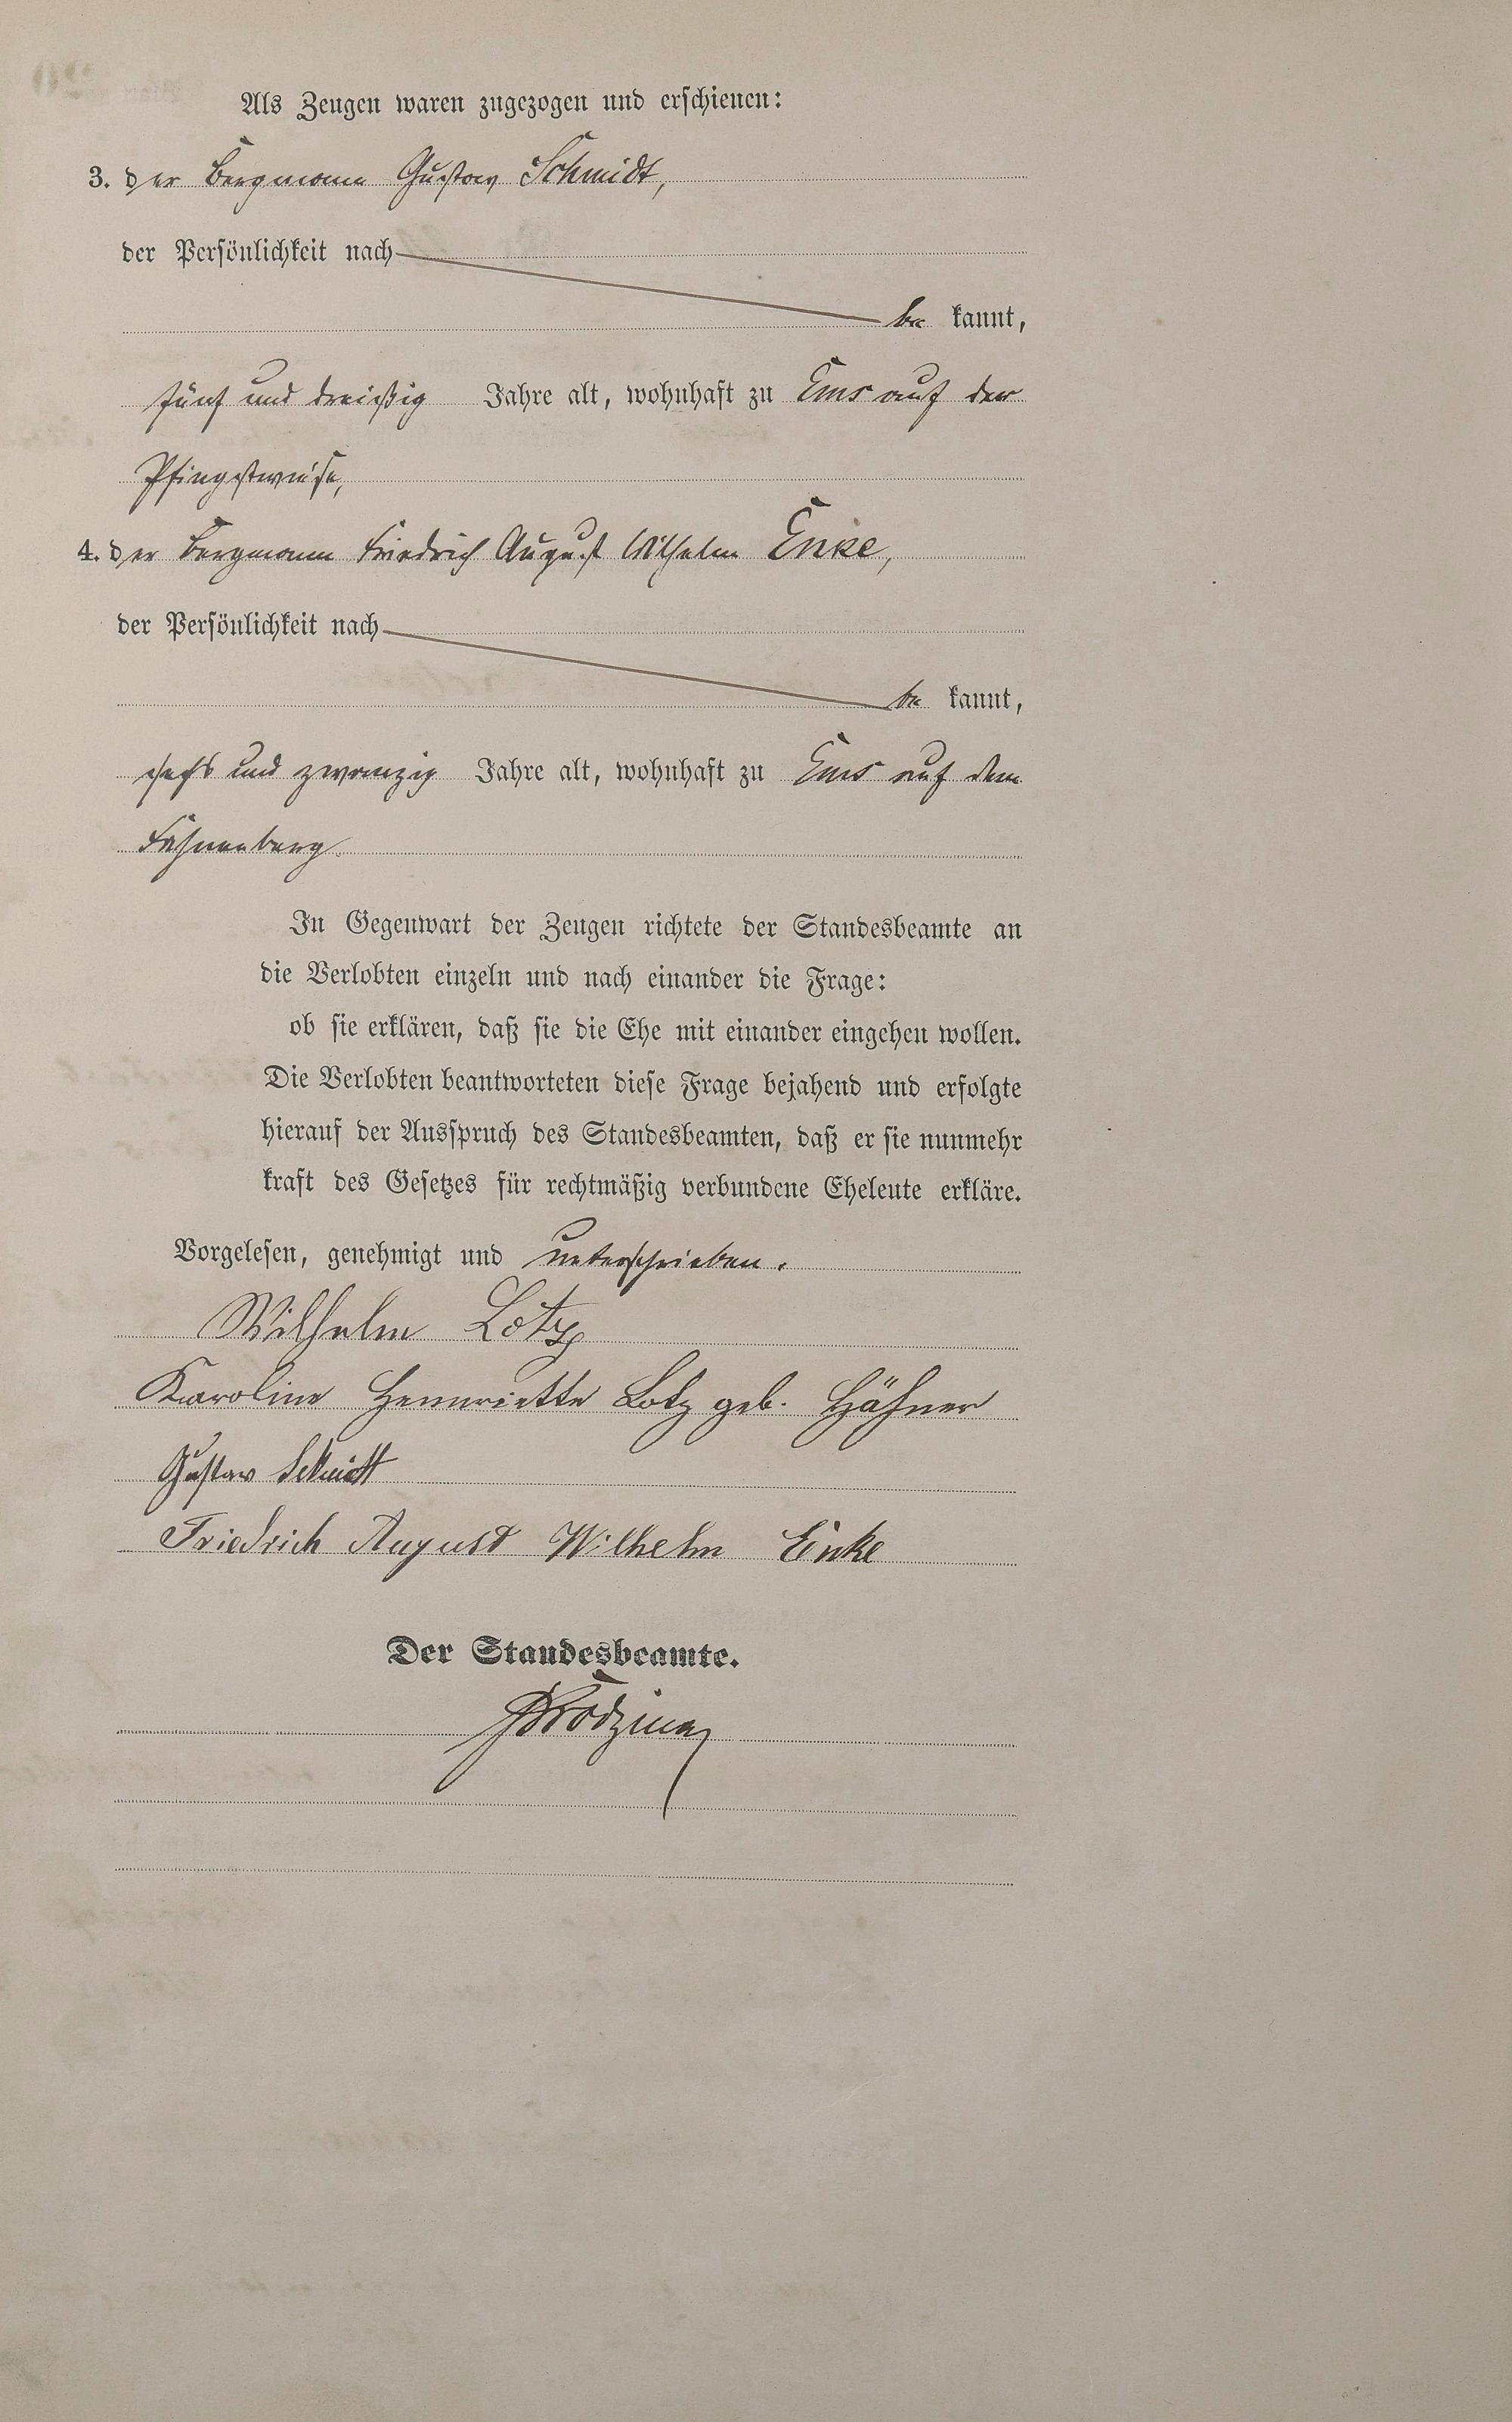 Als Zeugen waren zugezogen und erschienen:
3. der Bergmann Gustav Schmidt,
der Persönlichkeit nach
be kannt,
fünf und dreißig Jahre alt, wohnhaft zu Ems auf der
Pfingstwiese,
4. der Bergmann Friedrich August Wilhelm Enke,
der Persönlichkeit nach
be kannt,
sechs und zwanzig Jahre alt, wohnhaft zu Ems auf dem
Fahnenberg.
In Gegenwart der Zeugen richtete der Standesbeamte an
die Verlobten einzeln und nach einander die Frage:
ob sie erklären, daß sie die Ehe mit einander eingehen wollen.
Die Verlobten beantworteten diese Frage bejahend und erfolgte
hierauf der Ausspruch des Standesbeamten, daß er sie nunmehr
kraft des Gesetzes für rechtmäßig verbundene Eheleute erkläre.
Vorgelesen, genehmigt und unterschrieben.
Wilhelm Lotz
Karoline Hennriette Lotz geb. Hähner
Gustav Schmidt
Friedrich August Wilhelm Enke
Der Standesbeamte.